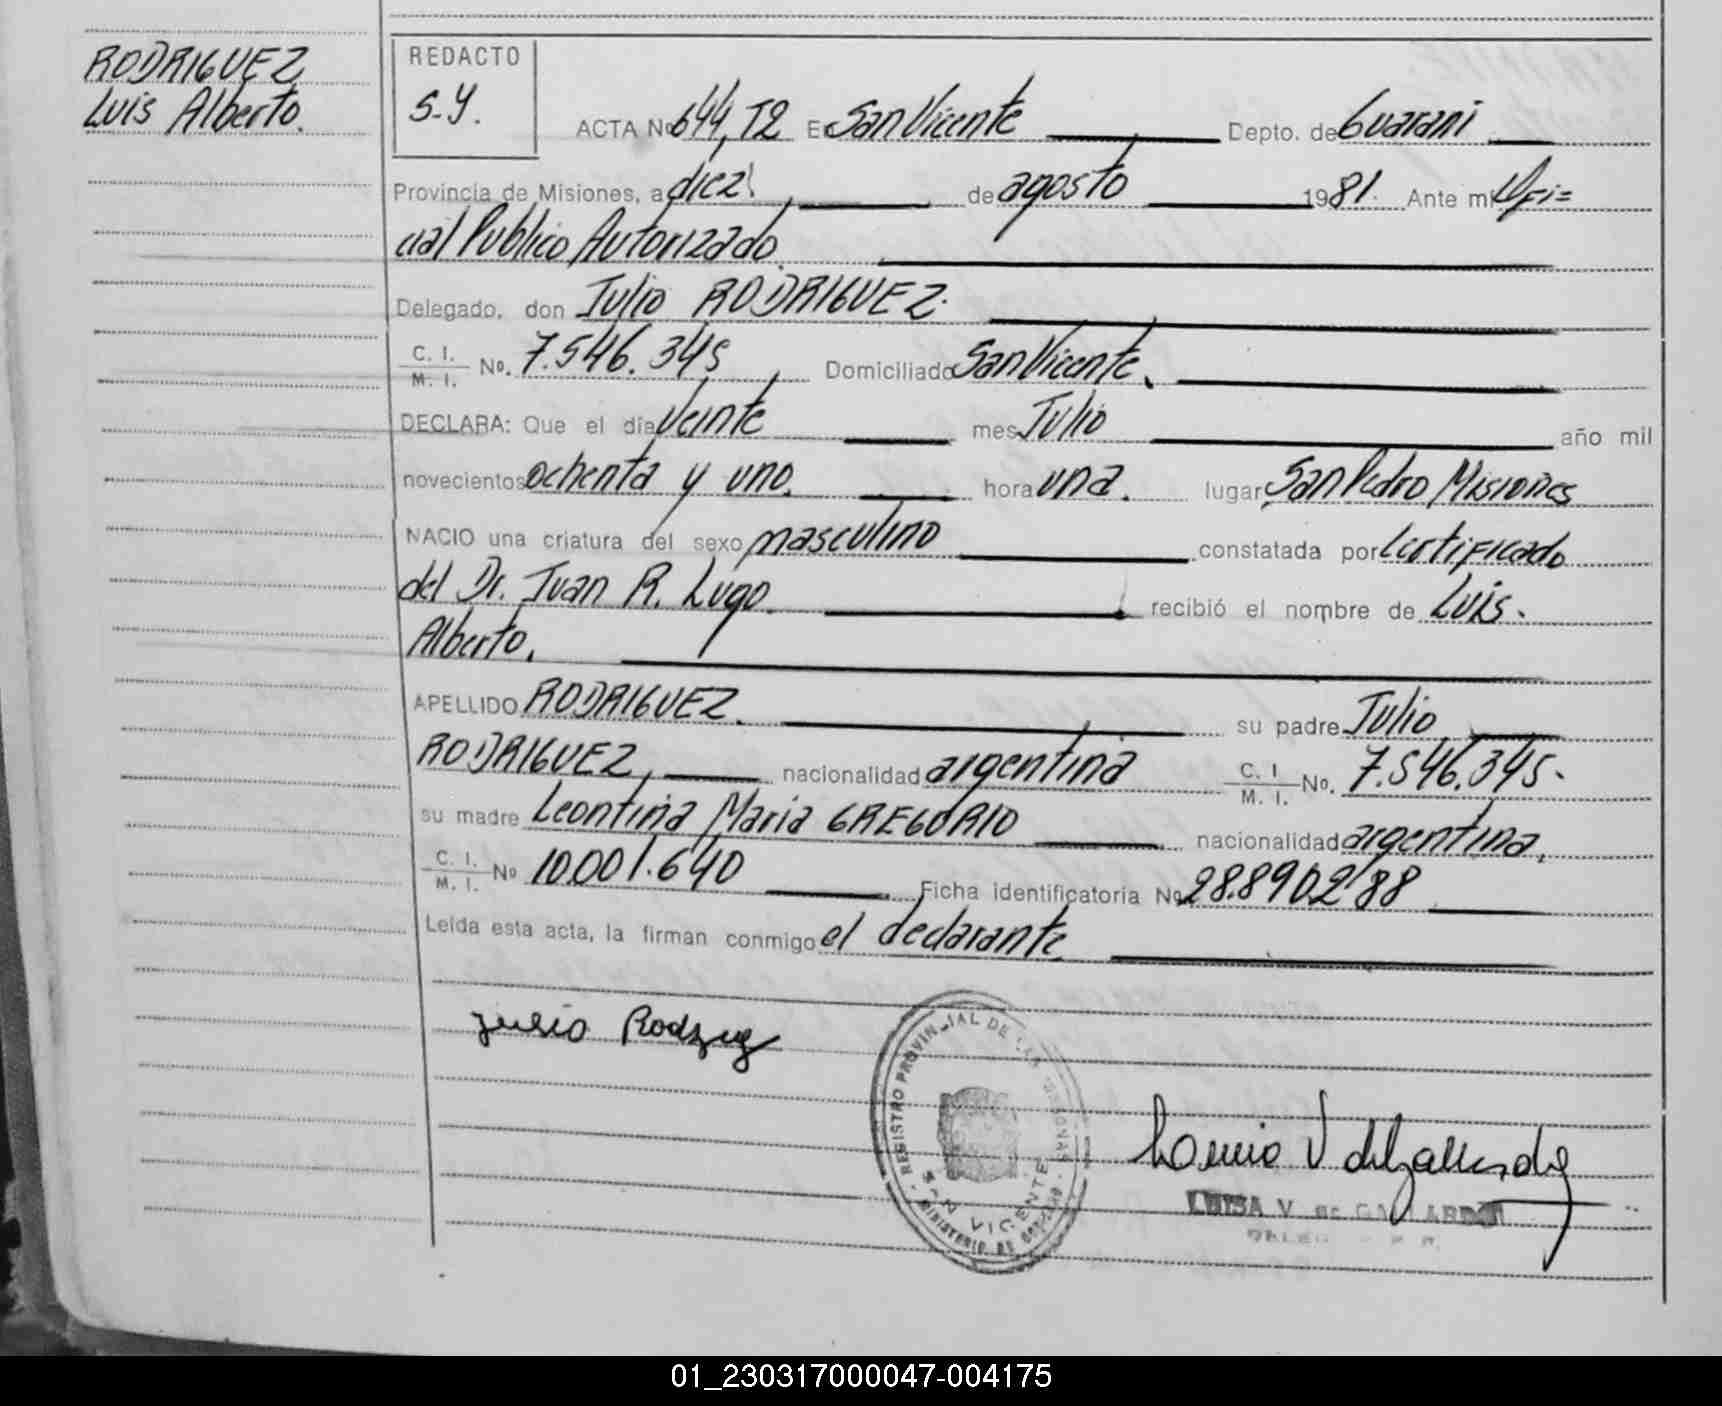 RODRIGUEZ
Luis Alberto.
REDACTO
S.Y.
ACTA Nº 644, T2 En San Vicente Depto. de Guarani
Provincia de Misiones, a diez de agosto 1981. Ante mi Ofi=
cial Publico Autorizado
Delegado, don Julio RODRIGUEZ.
C. I. / M. I. No. 7.546.345 Domiciliado San Vicente,
DECLARA: Que el dia Veinte mes Julio año mil
novecientos ochenta y uno. hora una. lugar San Pedro Misiones
NACIO una criatura del sexo masculino constatada por certificado
del Dr. Juan R. Lugo. recibió el nombre de Luis.
Alberto.
APELLIDO RODRIGUEZ. su padre Julio
RODRIGUEZ, nacionalidad argentina C. I. / M. I. No. 7.546.345.
su madre Leontina Maria GREGORIO nacionalidad argentina,
C. I. / M. I. Nº 10.001.640 Ficha identificatoria Nº 28.890288
Leída esta acta, la firman conmigo el declarante
Julio Rodrig
REGISTRO PROVINCIAL DE LAS PERSONAS
SAN VICENTE
MINISTERIO DE GOBIERNO
LUISA V. de GALLARDO
01_230317000047-004175